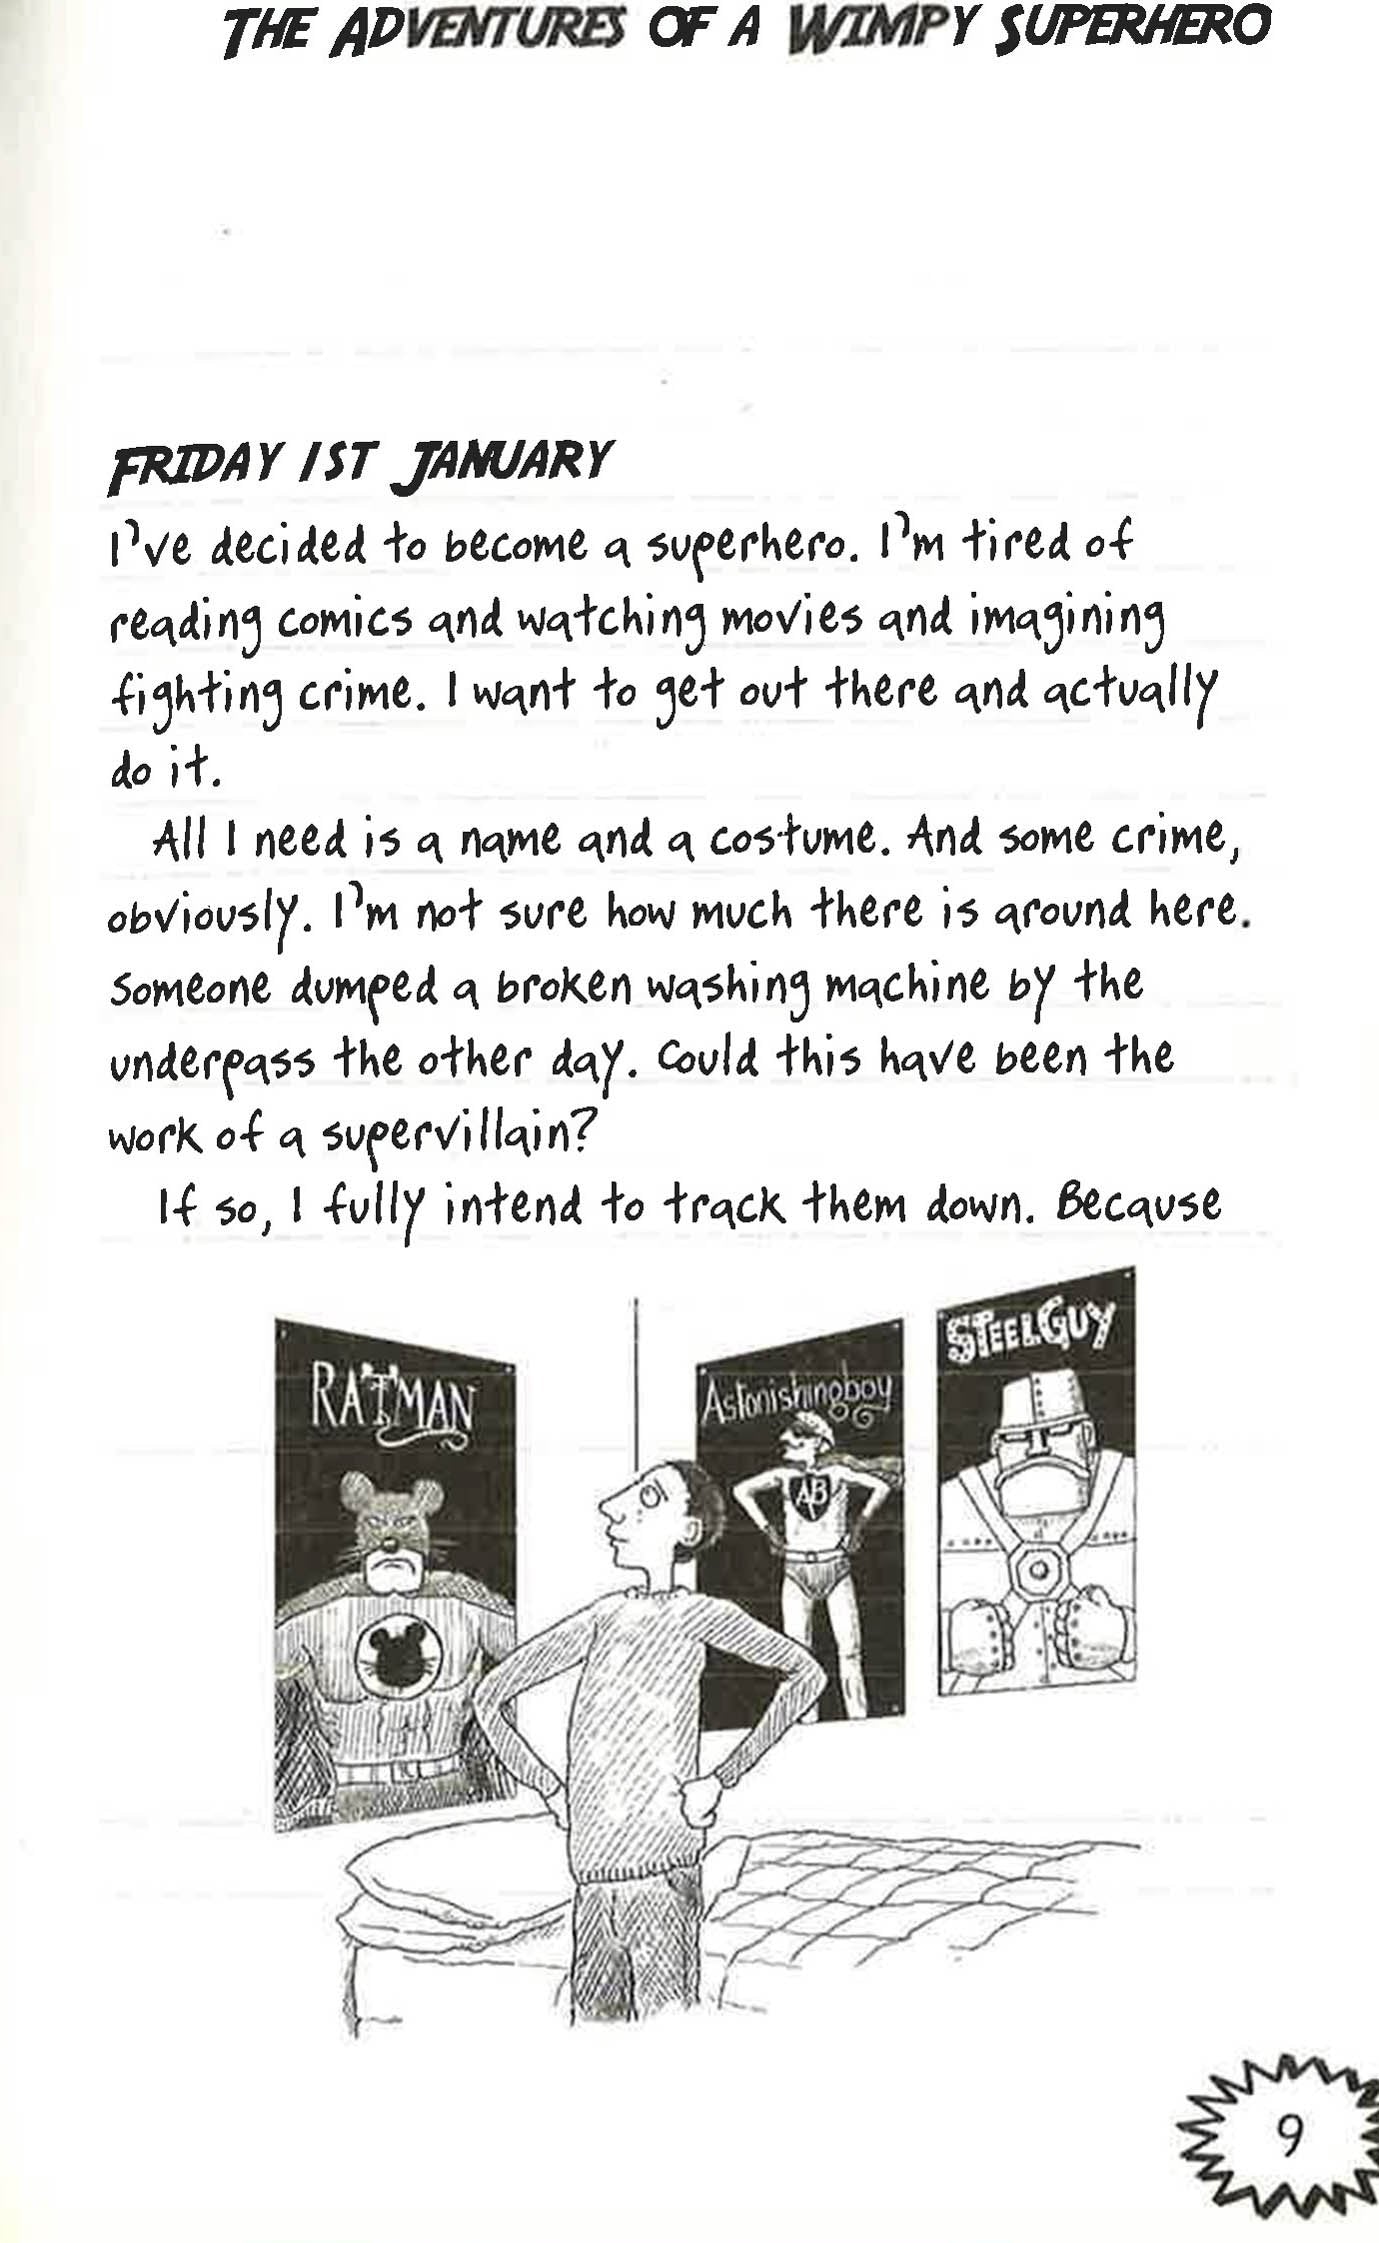 THE ADVENTURES OF A WIMPY SUPERHERO
FRIDAY 1ST JANUARY
I've decided to become a superhero. I'm tired of
reading comics and watching movies and imagining
fighting crime. I want to get out there and actually
do it.
All I need is a name and a costume. And some crime,
obviously. I'm not sure how much there is around here.
Someone dumped a broken washing machine by the
underpass the other day. Could this have been the
work of a supervillain?
If so, I fully intend to track them down. Because
STEELGUY
RATMAN
Astonishingboy
AB
9